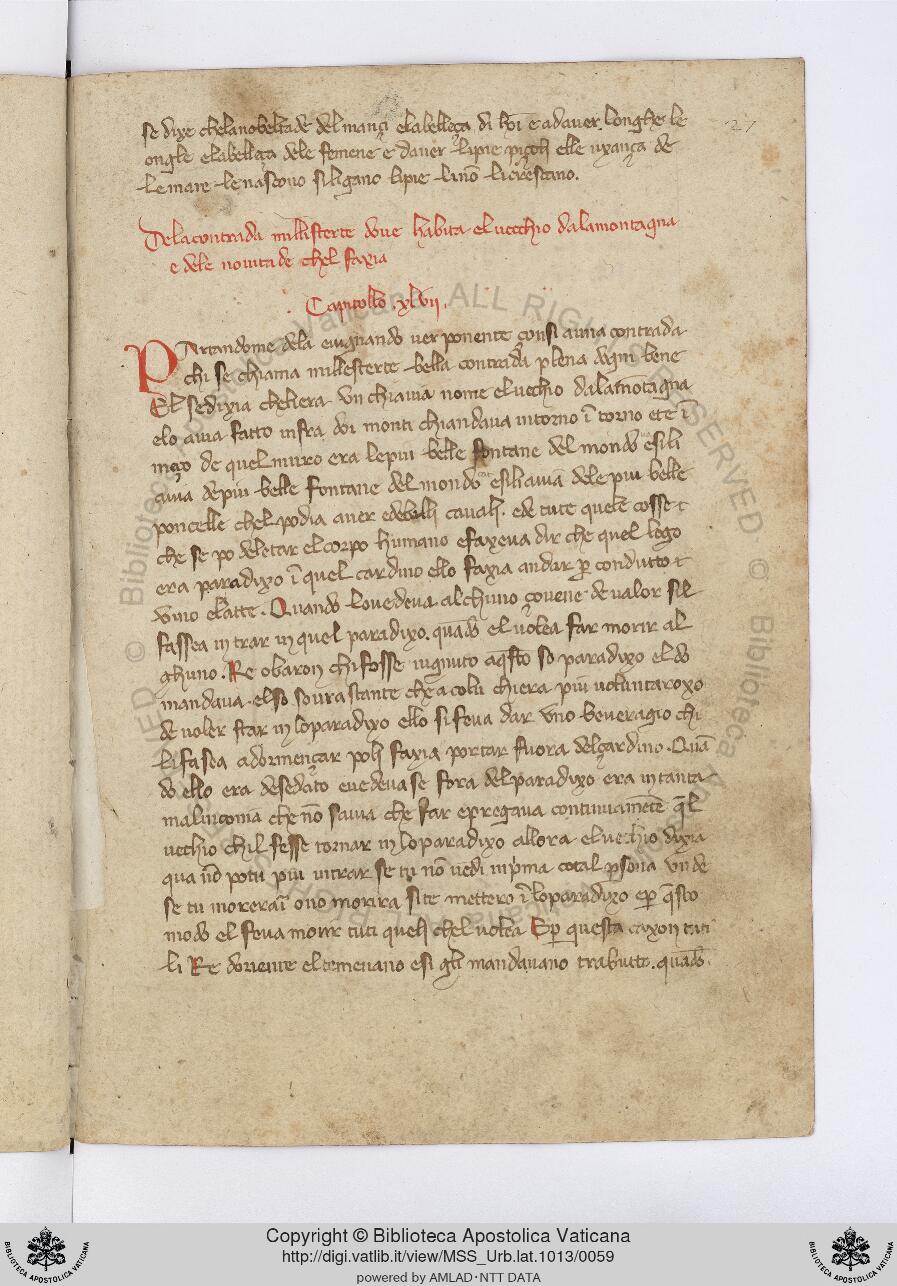 27
se dixe chela nobeltade del manzi ela belleça di hoī e ad aver longhe le
ongle e la belleça dele femene e daver li pie piçoli elle uxança de
le mare le nascono si ligano li pie li nō li crescano.
Dela contrada millesterte dove habita el vecchio dala montagna
e dele novita de chel faxia
Capitollo .xlvii.
PArtandome dela cuignando ver ponente consi a una contrada
chi se chiama millesterte bella contrada plena dogni bene
El se dixia cheliera un chiavia nome el vechio dala mōtagna
elo avia fatto infra doi monti chi andava intorno ī torno et e ī
meço de quel muro era le piu belle fontane del mondo e sili
avia de piu belle fontane del mondo e sili aviā dele piu belle
poncelle chel podia aver e de belli cavali. e de tute quele cosse
che se po deletar el corpo humano e faxeva dir che quel logo
era paradixo ī quel cardino ello faxia andar per condutto
vino e latte. Quando lo vedeva alchuno çovene de valor sil
fassea intrar in quel paradixo. quādo el volea far morir al
ghuno. Re o baron chi fosse iugnuto a q̄sto so paradixo el do
mandava el so sourastante che a colu chiera piu voluntaroxo
de voler star in lo paradixo ello si feva dar uno beveragio chi
li fasea adormençar poli faxia portar fuora del çardino. Quā
do ello era desedato e vedevase fora del paradixo era in tanta
malinconia che nō savia che far e pregava continuamēte q̄l
vechio chil fesse tornar in lo paradixo allora el vechio dixia
qua nō d potu piu intrar se tu nō vedi in prima cotal persona unde
se tu morerai o no morira si te mettero ī lo paradixo e per q̄sto
modo el feva morir tuti queli chel volea E per questa caxon tuti
li Re doriente el temevano e si gli mandavano trabutto. quādo
Copyright © Biblioteca Apostolica Vaticana
http://digi.vatlib.it/view/MSS_Urb.lat.1013/0059
powered by AMLAD · NTT DATA
BIBLIOTECA APOSTOLICA VATICANA
BIBLIOTECA APOSTOLICA VATICANA